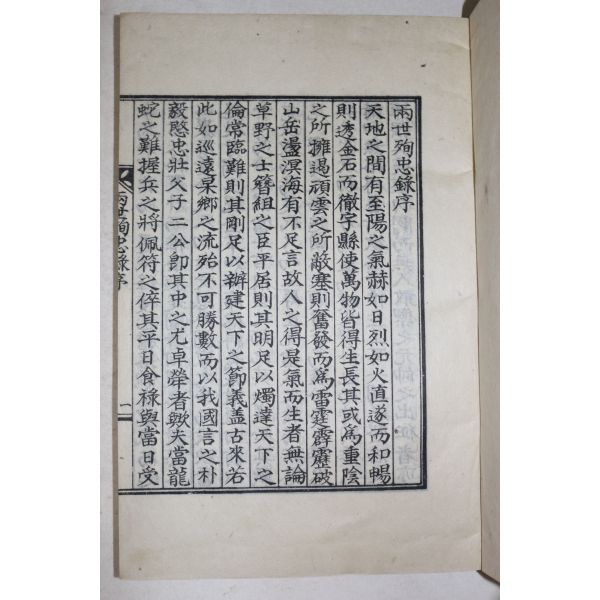 兩世殉忠錄序
天地之間有至陽之氣赫如日烈如火直遂而和暢
則透金石而徹宇縣使萬物皆得生長其或爲重陰
之所擁遏頑雲之所蔽塞則奮發而爲雷霆霹靂破
山岳盪溟海有不足言故人之得是氣而生者無論
草野之士簪組之臣平居則其明足以燭達天下之
倫常臨難則其剛足以辦建天下之節義盖古來若
此如巡遠杲鄕之流殆不可勝數而以我國言之朴
毅愍忠壯父子二公卽其中之尤卓犖者歟夫當龍
蛇之難握兵之將佩符之倅其平日食祿與當日受
兩世殉忠錄序
一